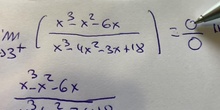 lim x→3⁺ ( (x³-x²-6x) / (x³-4x²-3x+18) ) = 0/0
x³-x²-6x